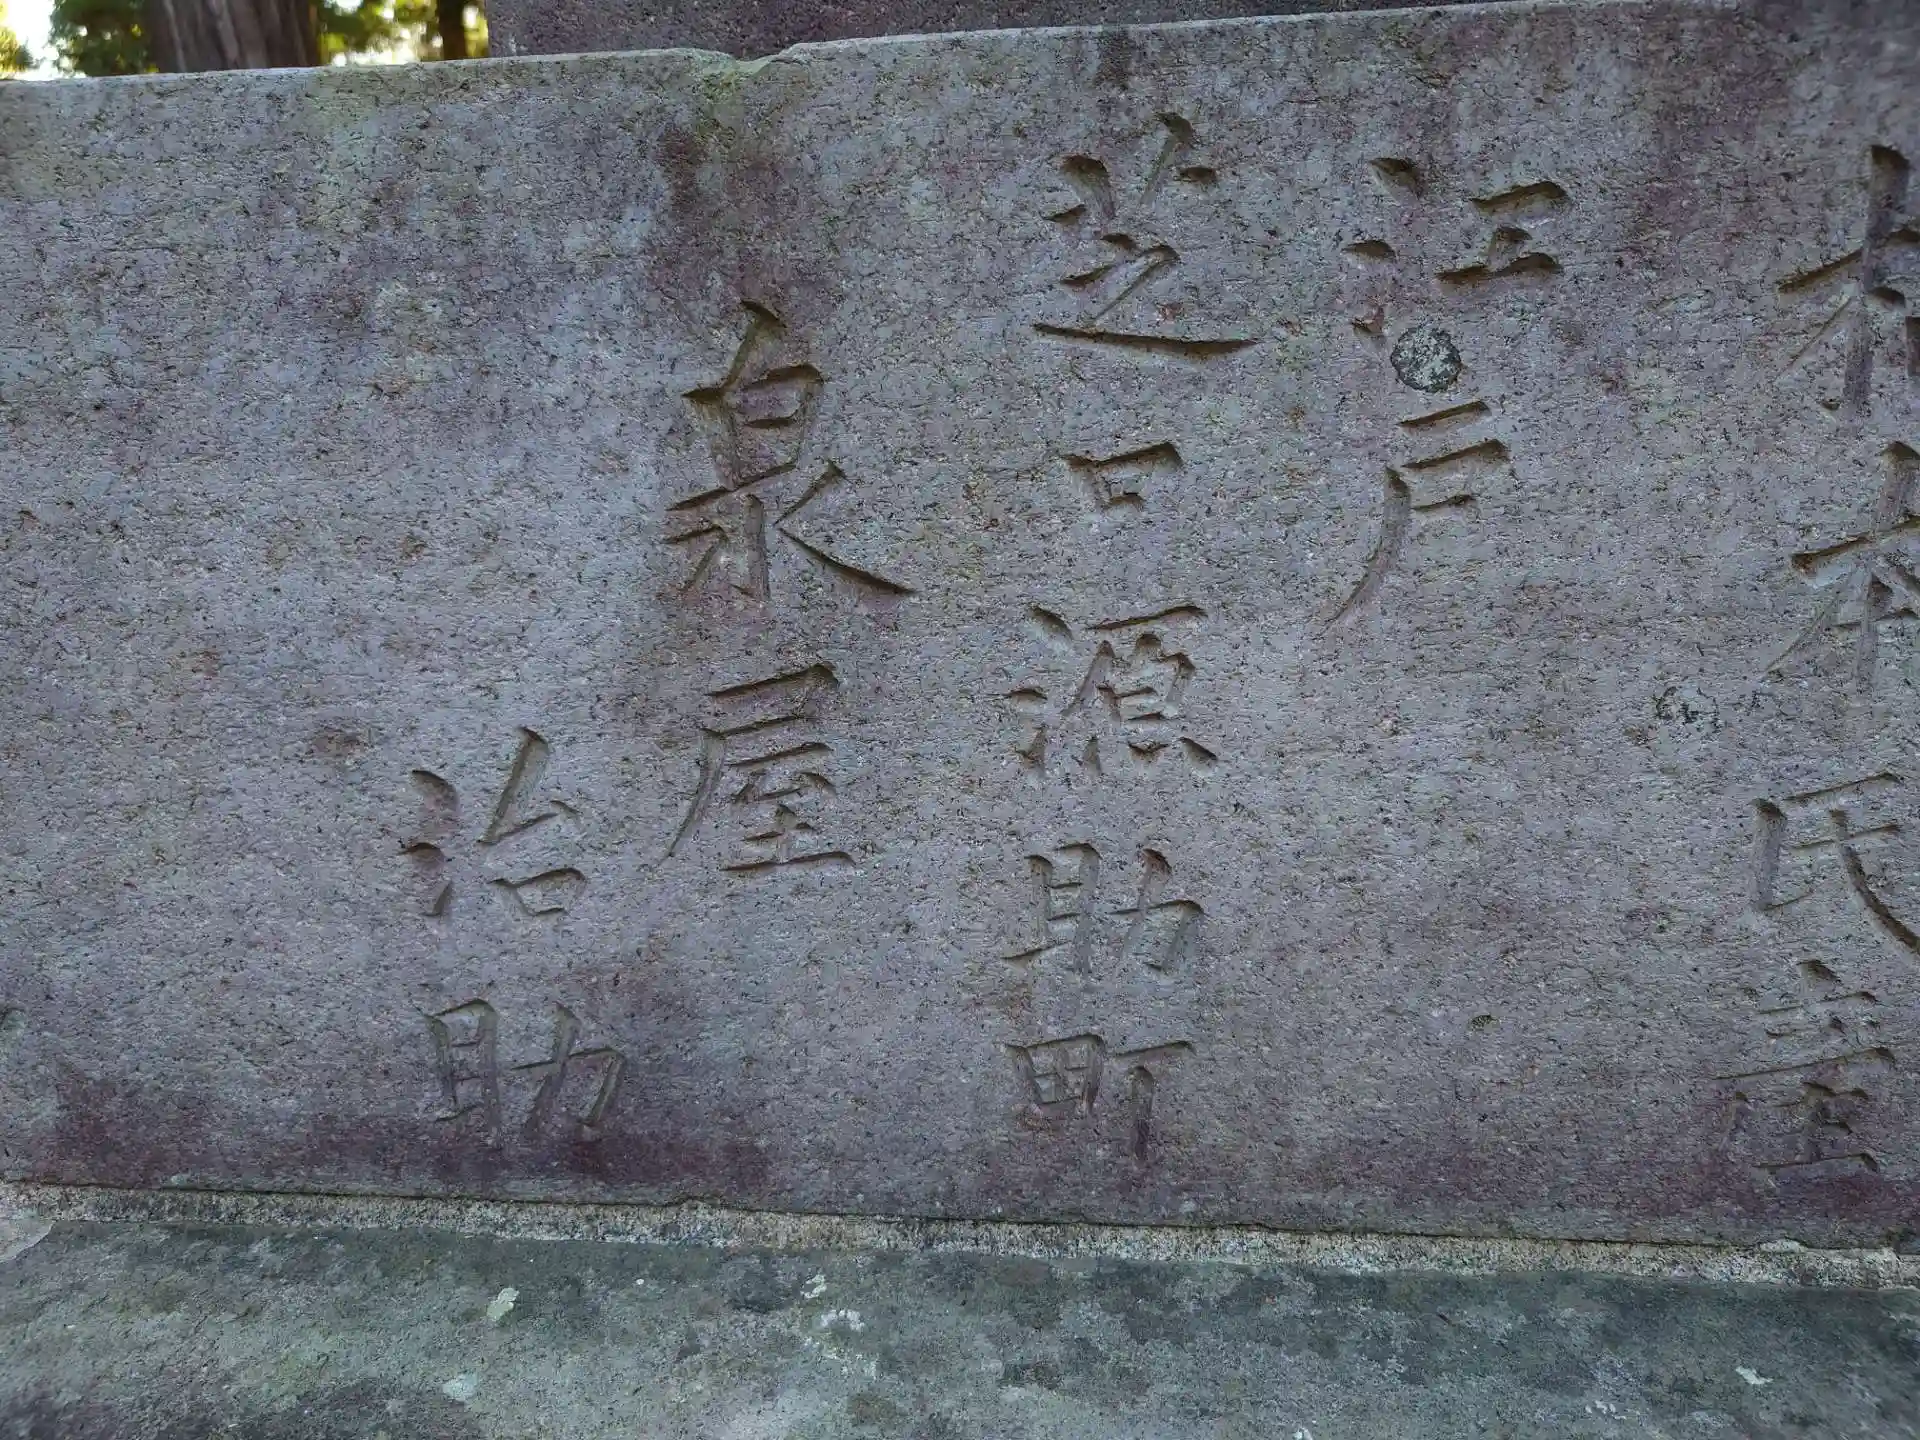 植村氏室
江戸
芝口源助町
泉屋
治助